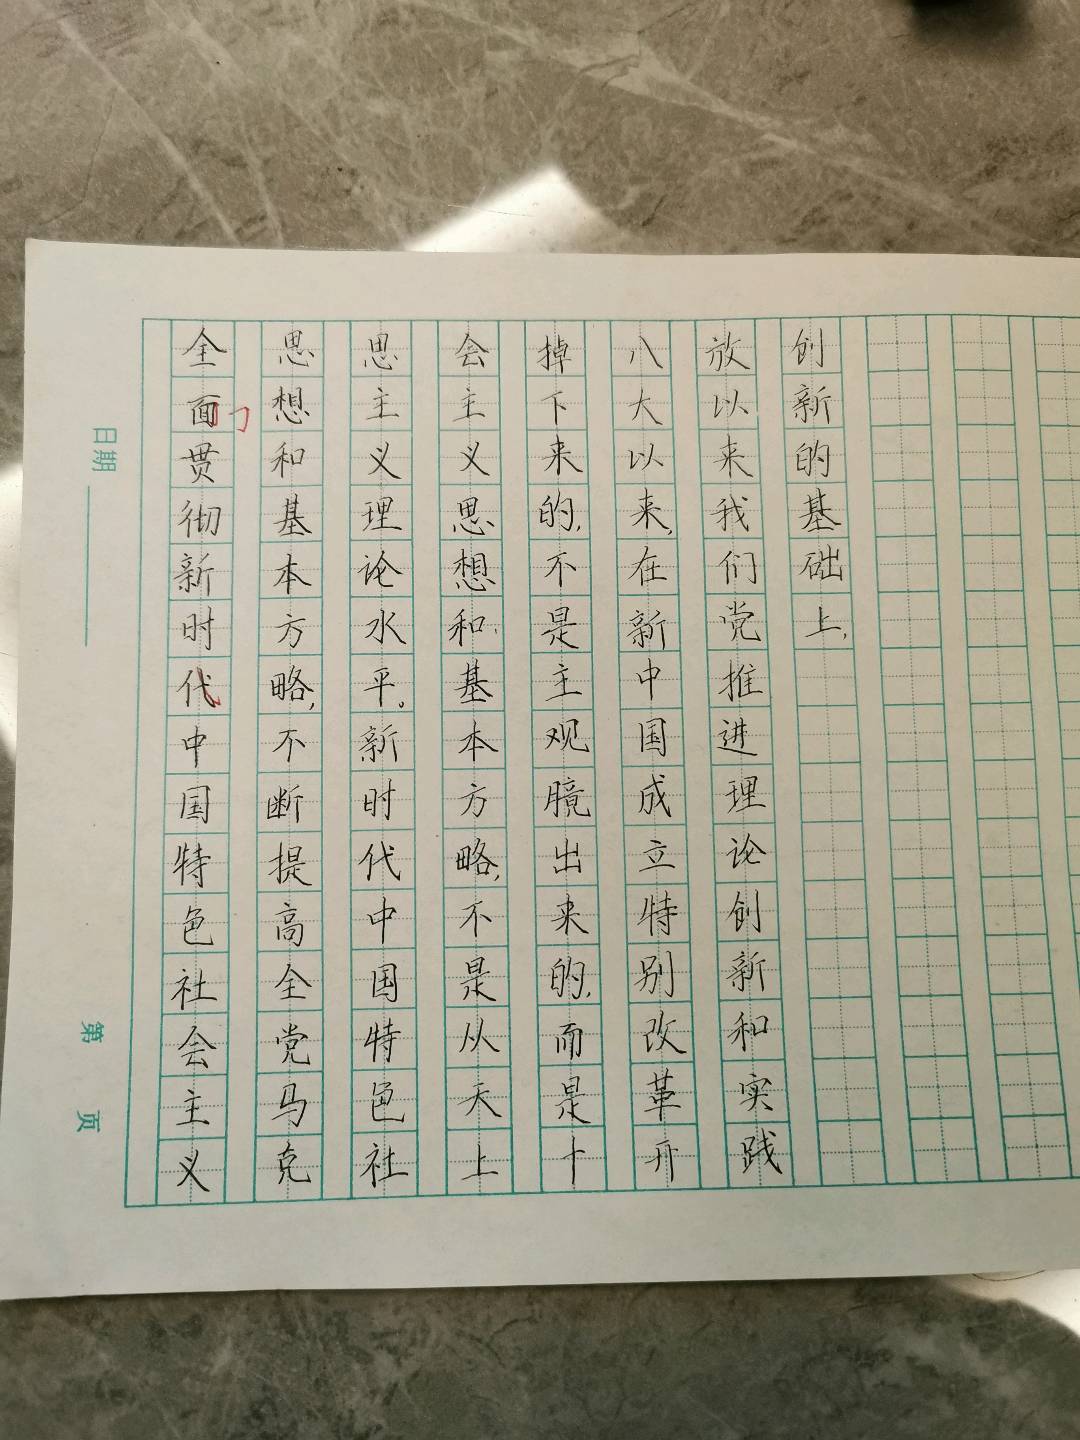 日期
第 页
全面贯彻新时代中国特色社会主义
思想和基本方略,不断提高全党马克
思主义理论水平。新时代中国特色社
会主义思想和基本方略,不是从天上
掉下来的,不是主观臆出来的,而是十
八大以来,在新中国成立特别改革开
放以来我们党推进理论创新和实践
创新的基础上,